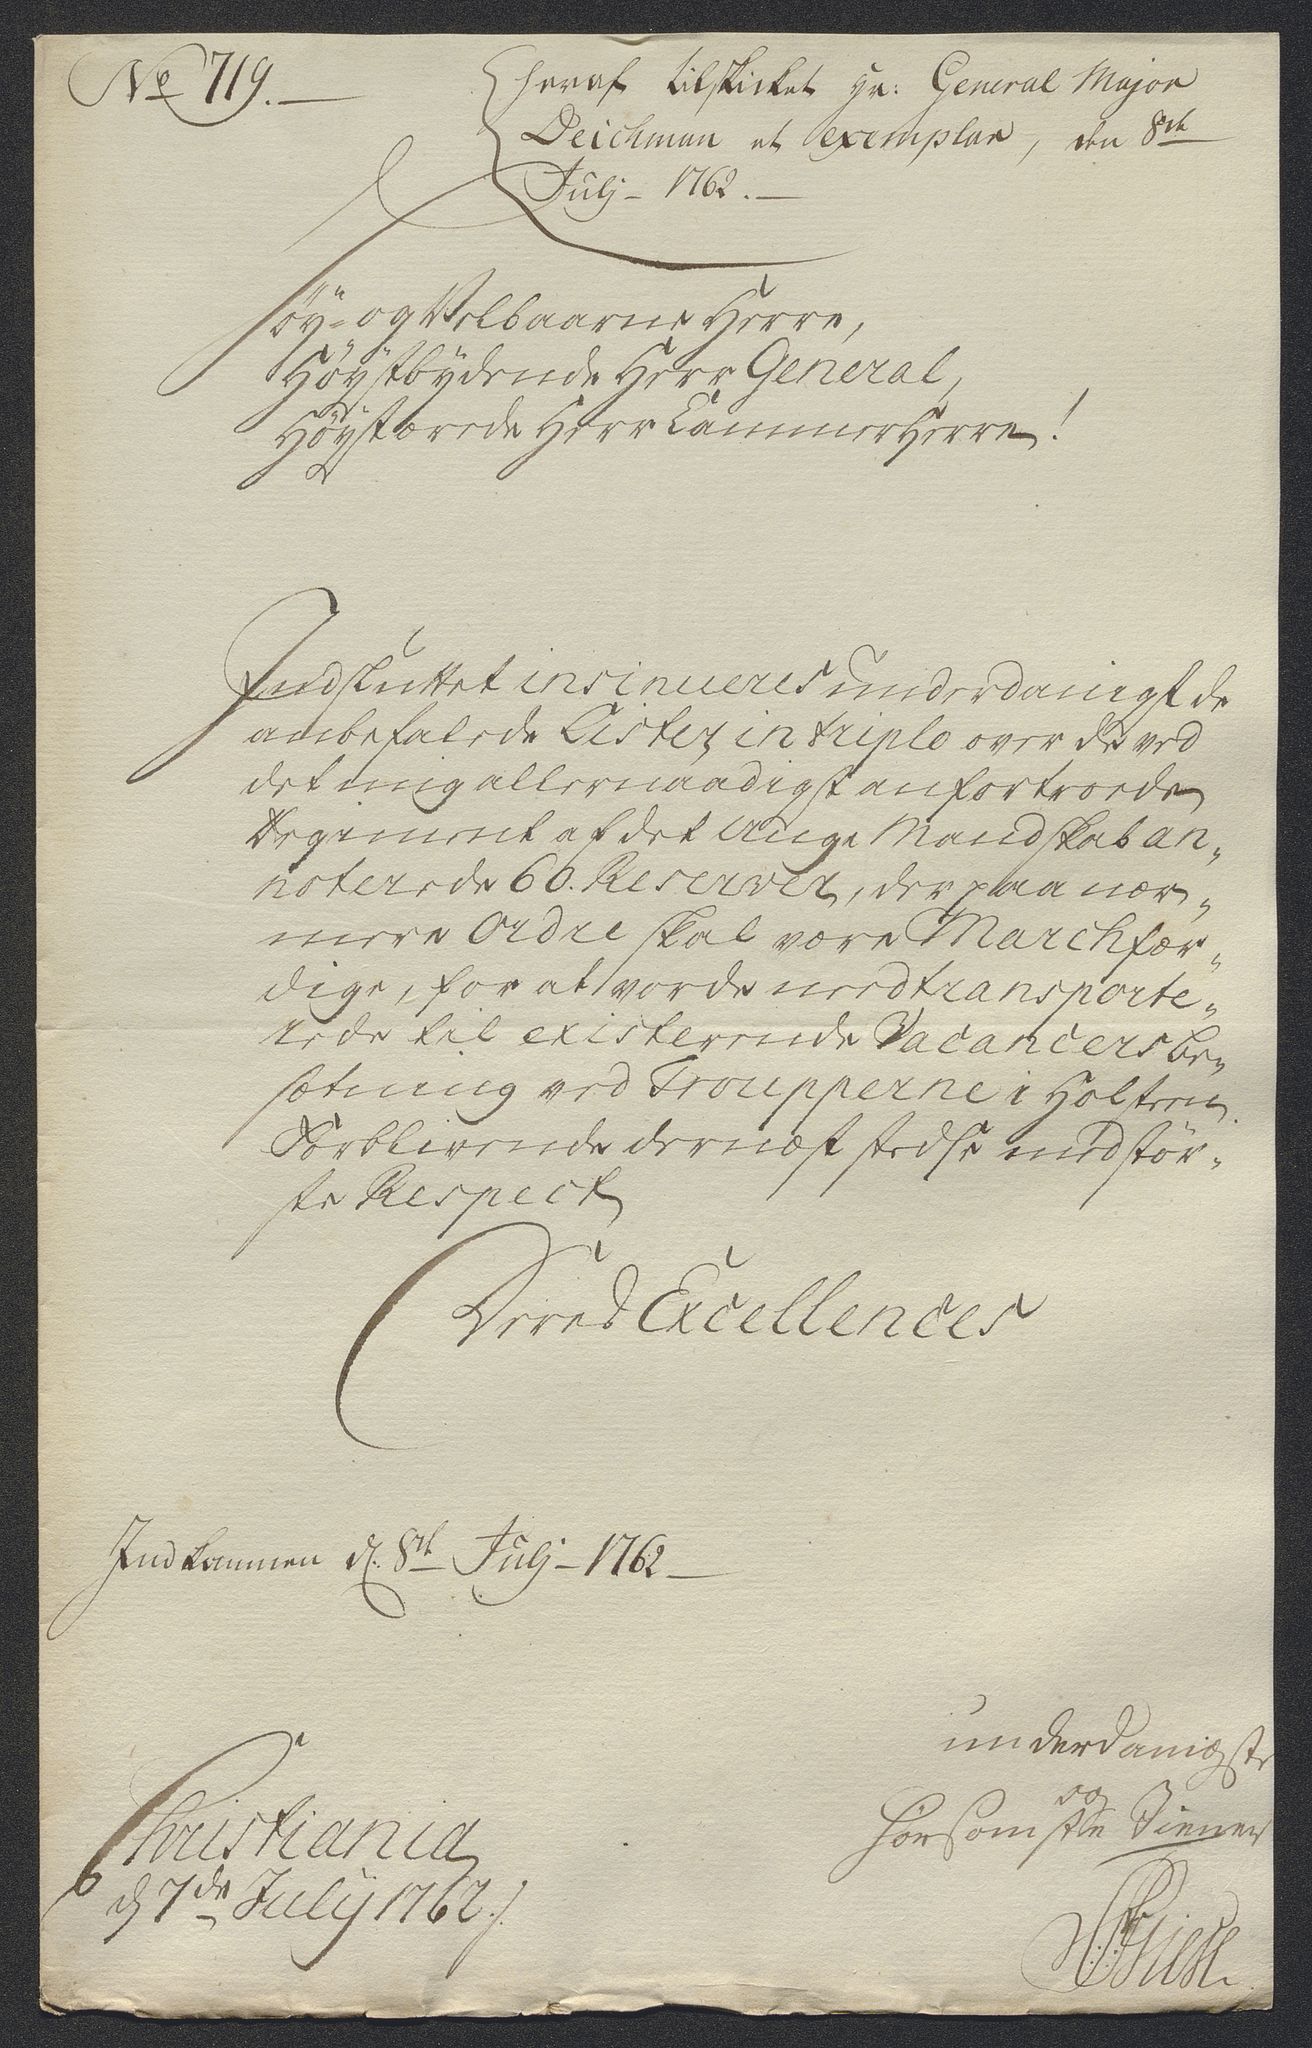 No 719.
heraf tilskicket Hr: General Major
Deichman et exemplar, den 8de
Julj 1762.
Høy- og Velbaarne Herre,
Høystbydende Herr General,
Høystærede Herr CammerHerre!
Indsluttet insinueres underdanigst de
anbefalede Lister in triplo over de ved
det mig allernaadigst anfortroede
Regiment af det unge Mandskab an-
noterede 60. Reserver, der paa nær-
mere Ordre skal være Marchfær-
dige, for at vorde needtransporte-
rede til existerende Vacancers be-
sætning ved Troupperne i Holsteen.
Forblivende dernæst stedse med stør-
ste Respect
Deres Excellences
Indkommen d. 8de Julj 1762
underdanigste
og
hørsomste Tiener
Christiania
d 7de July 1762.